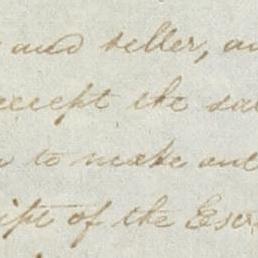 and seller, an
accept the sa
to make out
ipt of the Esc